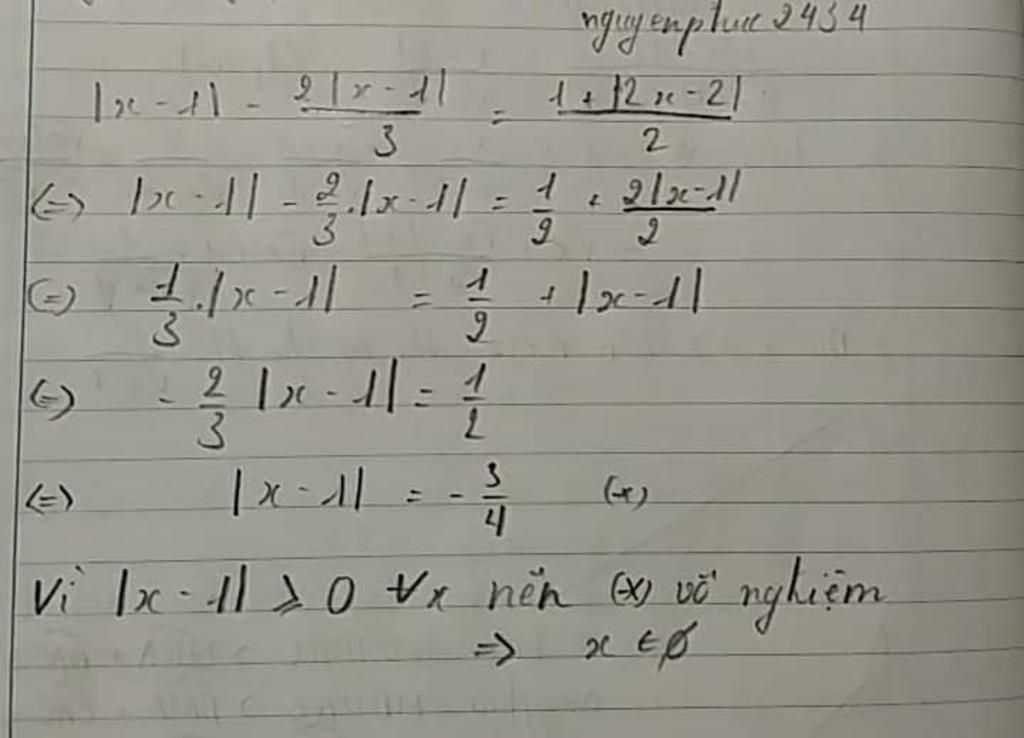 nguyenphuc2434
|x - 1| - \frac{2|x - 1|}{3} = \frac{1 + |2x - 2|}{2}
(=) |x - 1| - \frac{2}{3}.|x - 1| = \frac{1}{2} + \frac{2|x - 1|}{2}
(=) \frac{1}{3}.|x - 1| = \frac{1}{2} + |x - 1|
(=) - \frac{2}{3} |x - 1| = \frac{1}{2}
(=) |x - 1| = - \frac{3}{4} (*)
Vì |x - 1| ≥ 0 ∀x nên (*) vô nghiệm
=> x ∈ ∅